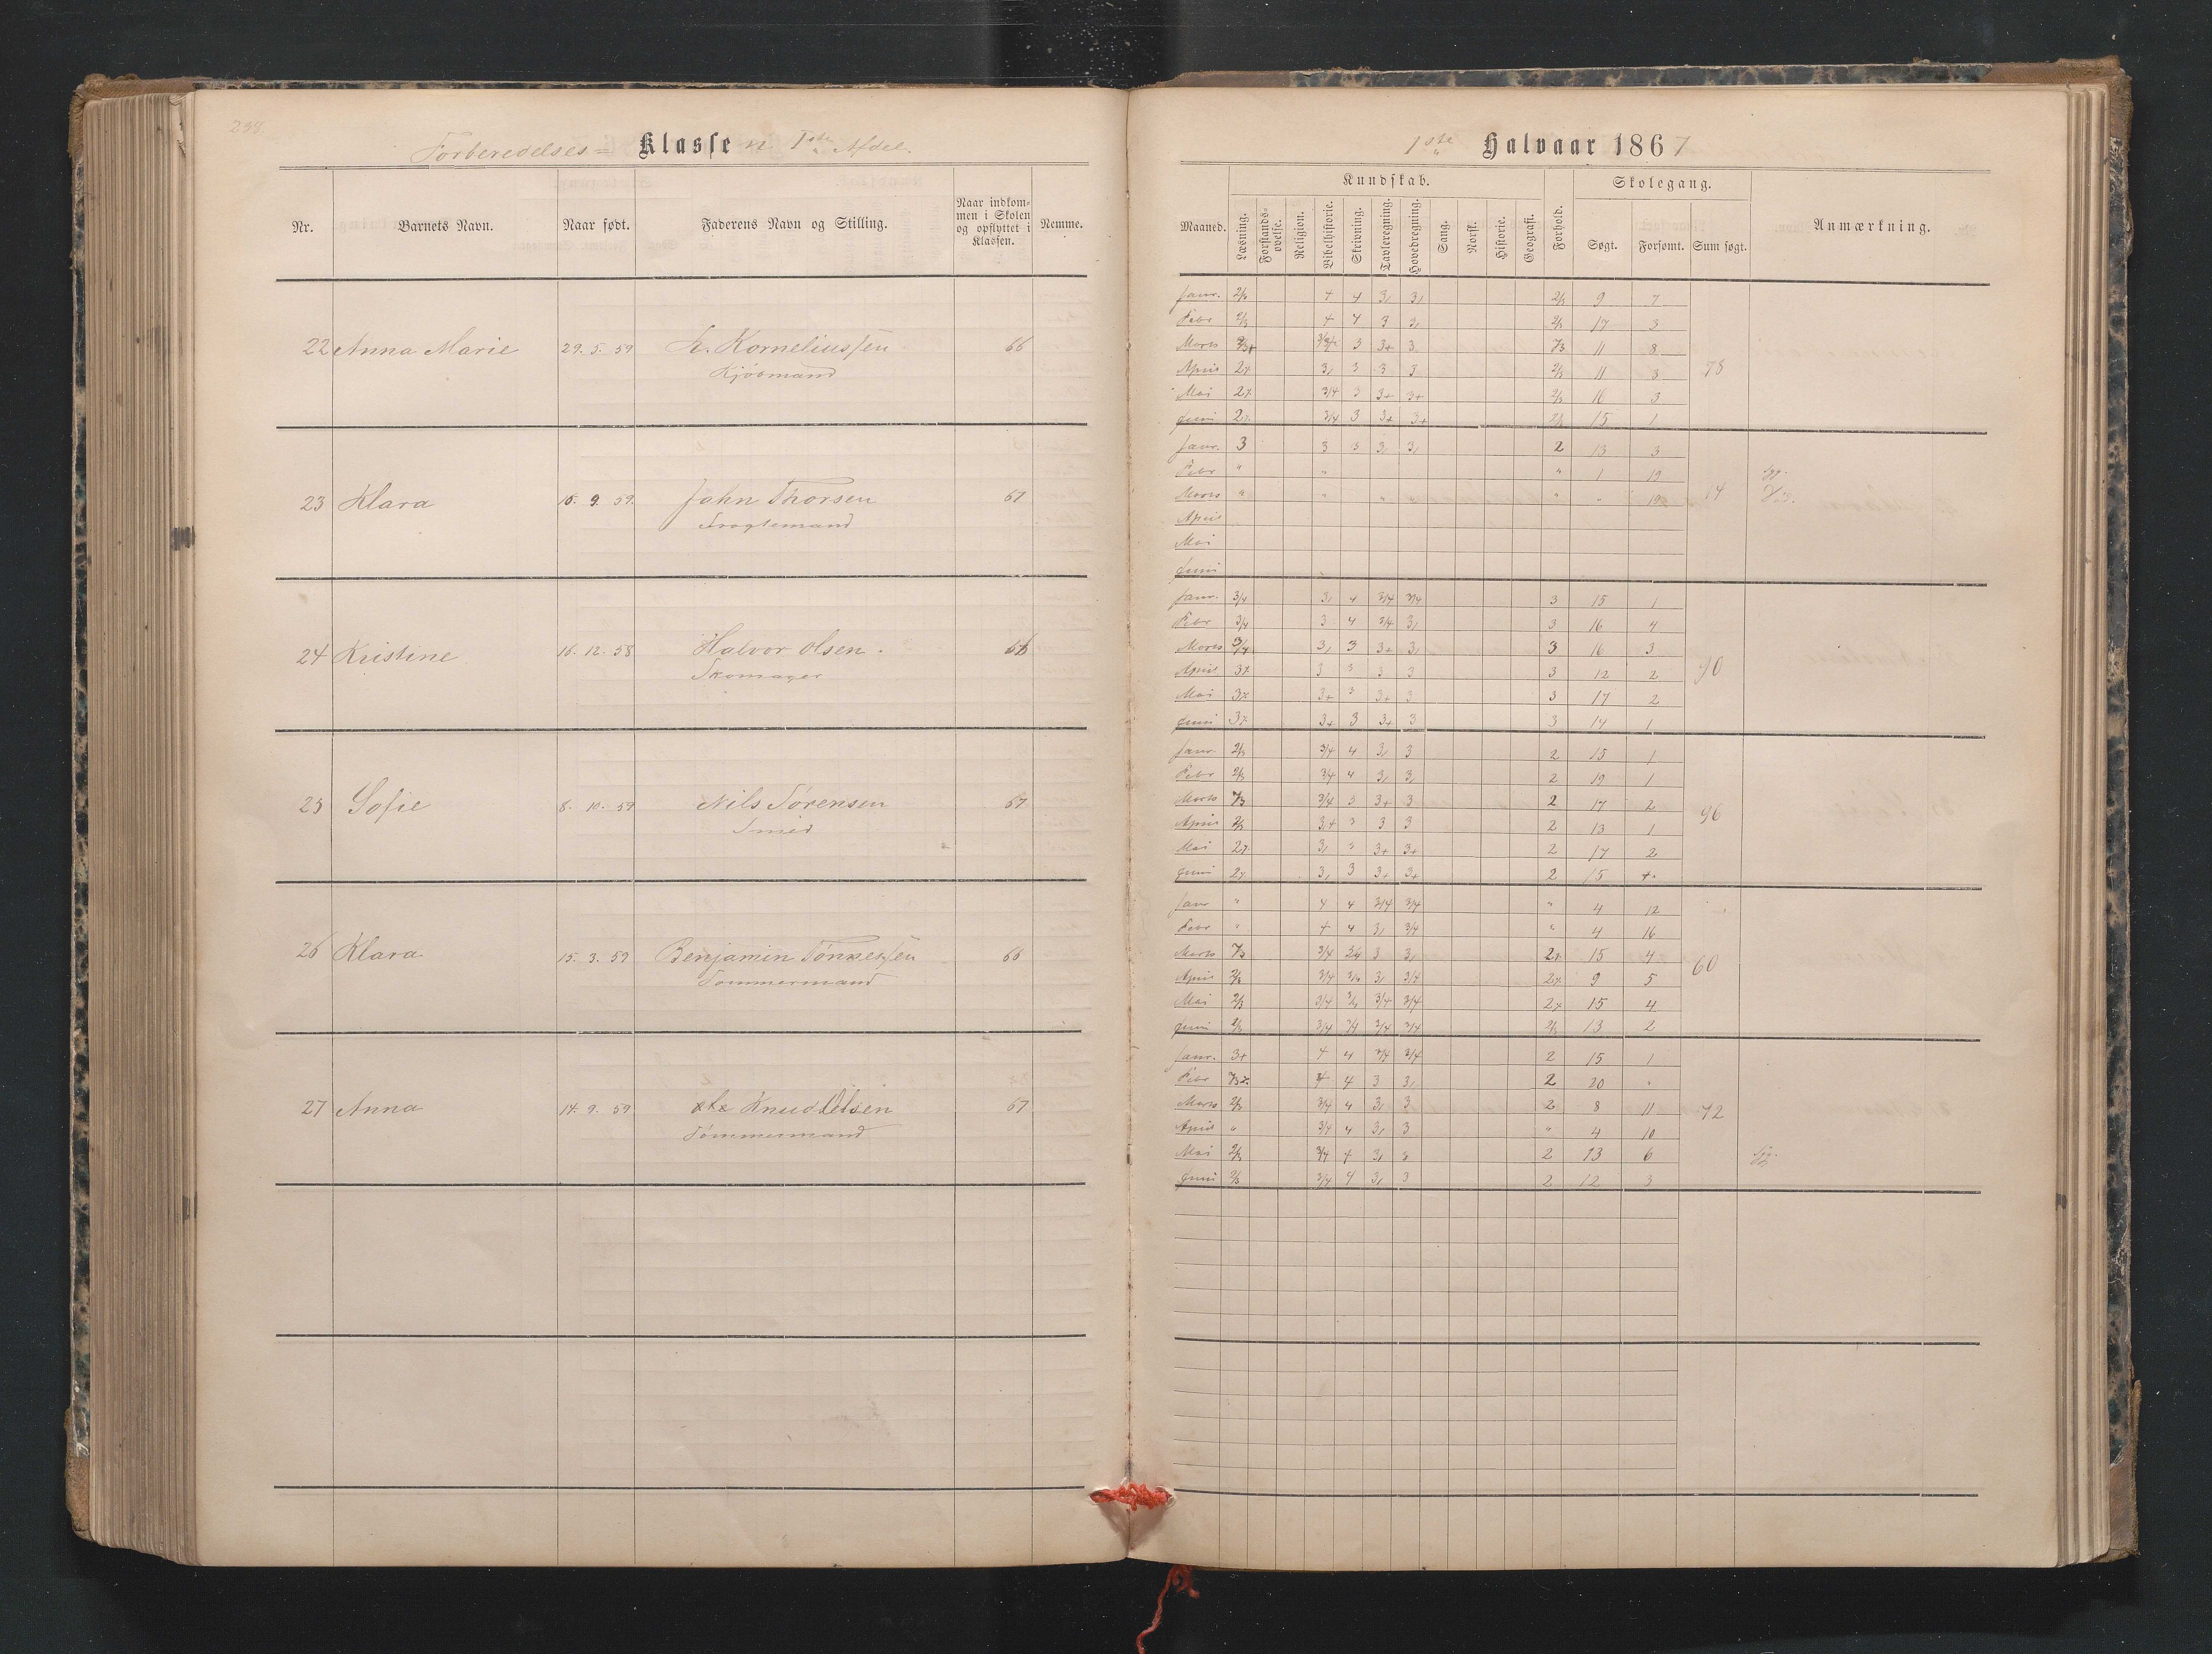 238.
Forberedelses= Klassen 1ste Afdel.
Nr. Barnets Navn. Naar født. Faderens Navn og Stilling. Naar indkommen i Skolen og opflyttet i Klassen. Nemme.
22 Anna Marie 29. 5. 59 Korneliussen 66
Kjøbmand
23 Klara 15. 9. 59. John Thorsen 67
24 Kristine 16. 12. 58 Halvor Olsen.
Skomager
25 Sofie 8. 10. 59 Nils Sørensen 67
Smed
26 Klara 15. 3. 59 Benjamin Tønnessen 66
Tømmermand
27 Anna 14. 9. 59 Knudsen 67
Tømmermand
1ste Halvaar 1867
Kundskab. Skolegang.
Maaned. Læsning. Forstandsøvelse. Religion. Bibelhistorie. Skrivning. Tavleregning. Hovedregning. Sang. Norsk. Historie. Geografi. Forhold. Søgt. Forsømt. Sum søgt. Anmærkning.
Janr. 2/3 4 4 3, 3, 2/3 9 7
Febr 2/3 4 4 3 3, 2/3 17 3
Marts 3 3+ 3 11 8
April 3, 3 3 3 2/3 11 3 78
Mai 3/4 3 3+ 3+ 2/3 16 3
Juni 3/4 3 3+ 3+ 2/3 15 1
Janr. 3 3 3 3, 3, 2 13 3
Febr " " " 1 19 Syg.
Marts " " " " " " 19 14
April
Mai
Juni
Janr. 3/4 3, 4 3/4 3/4 3 15 1
Febr 3/4 3 4 3/4 3, 3 16 4
Marts 3/4 3, 3 3+ 3, 3 16 3
April 3 3 3 3 3 12 2 90
Mai 3+ 3 3+ 3 3 17 2
Juni 3+ 3 3+ 3 3 14 1
Janr. 2/3 3/4 4 3, 3 2 15 1
Febr 2/3 3/4 4 3, 3, 2 19 1
Marts 3/4 3 3+ 3 2 17 2
April 2/3 3 3 3 2 13 1 96
Mai 3, 3 3+ 3+ 2 17 2
Juni 3, 3 3+ 3+ 2 15
Janr " 4 4 3/4 3/4 " 4 12
Febr " 4 4 3, 3/4 " 4 16
Marts 3/4 3 3, 15 4
April 2/3 3/4 3, 3/4 9 5 60
Mai 2/3 3/4 3/4 3/4 15 4
Juni 2/3 3/4 3/4 3/4 3/4 2/3 13 2
Janr. 3+ 4 4 3/4 3/4 2 15 1
Febr 4 4 3 3, 2 20 "
Marts 2/3 3/4 4 3, 3 2 8 11 72
April " 3/4 4 3, 3 " 4 10
Mai 2/3 3/4 4 3, 3 2 13 6 Syg.
Juni 2/3 3/4 4 3, 3 2 12 3